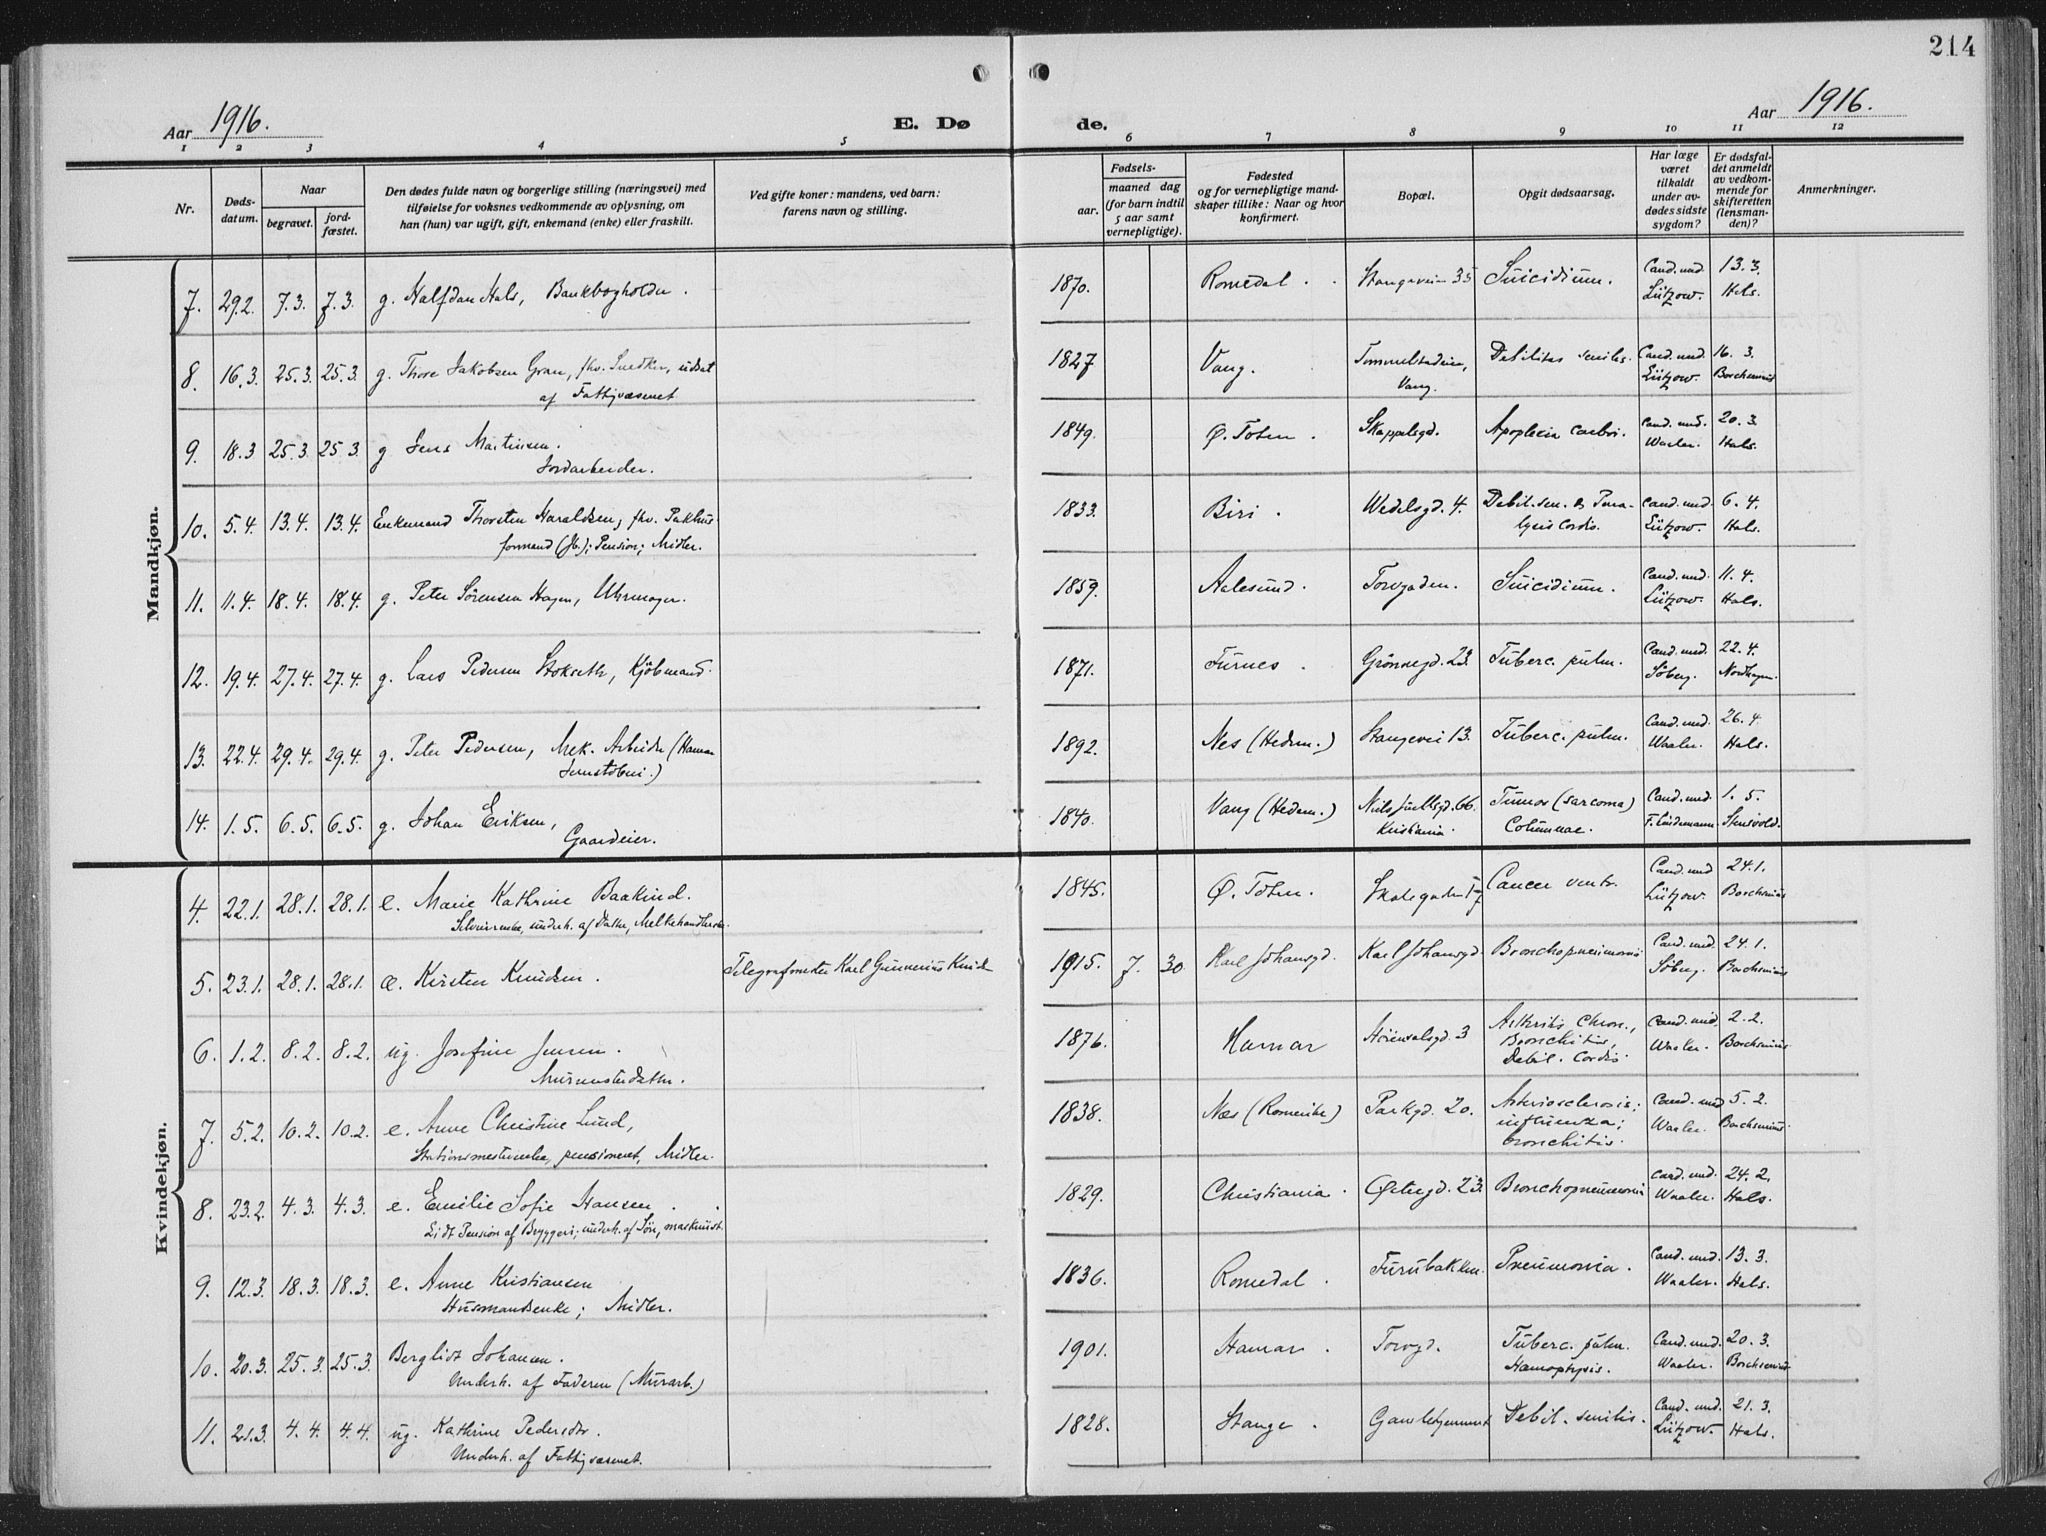 214
Aar 1916.
E. Dø
de.
Aar 1916.
1 2 3 4 5 6 7 8 9 10 11 12
Nr.
Døds-
datum.
Naar
begravet.
jord-
fæstet.
Den dødes fulde navn og borgerlige stilling (næringsvei) med
tilføielse for voksnes vedkommende av oplysning, om
han (hun) var ugift, gift, enkemand (enke) eller fraskilt.
Ved gifte koner: mandens, ved barn:
farens navn og stilling.
Fødsels-
aar.
maaned dag
(for barn indtil
5 aar samt
vernepligtige).
Fødested
og for vernepligtige mand-
skaper tillike: Naar og hvor
konfirmert.
Bopæl.
Opgit dødsaarsag.
Har læge
været
tilkaldt
under av-
dødes sidste
sygdom?
Er dødsfal-
det anmeldt
av vedkom-
mende for
skifteretten
(lensman-
den)?
Anmerkninger.
Mandkjøn.
7. 29.2. 7.3. 7.3. g. Halfdan Hals, Bankbogholder. 1870. Romedal. Stangeveien 35 Suicidium. Cand. med. 13.3.
Lützow. Hals.
8. 16.3. 25.3. 25.3. g. Thore Jakobsen Gran, fhv. Snedker, udsat 1827 Vang. Debilitas senilis. Cand. med. 16.3.
af Fattigvæsenet Vang. Lützow. Borchsenius
9. 18.3 25.3. 25.3. g Jens Martinsen. 1849. Ø. Toten. Skappelsgd. Apoplexia cerebri. Cand. med. 20.3.
Jordarbeider. Waaler. Hals.
10. 5.4. 13.4. 13.4. Enkemand Thorsten Haraldsen, fhv. Pakhus- 1833. Biri. Wedelsgd. 4. Debil. sen. & Para- Cand. med. 6.4.
formand (Jb.); Pension; Midler. lysis Cordis. Lützow. Hals.
11. 11.4. 18.4. 18.4. g. Peter Sørensen Hagen, Uhrmager. 1859. Aalesund. Torvgaden. Suicidium. Cand. med. 11.4.
Lützow. Hals.
12. 19.4. 27.4. 27.4. g. Lars Pedersen Stokseth, Kjöbmand. 1871. Furnes. Grönnegd. 23. Tuberc. pulm. Cand. med. 22.4.
Söberg. Nordhagen.
13. 22.4. 29.4. 29.4. g. Peter Pedersen, Mek. Arbeider (Hamar 1892. Nes (Hedem.) Stangevei 13. Tuberc. pulm. Cand. med. 26.4.
Jernstöberi.) Waaler. Hals.
14. 1.5. 6.5. 6.5. g. Johan Eriksen, 1840. Vang (Hedem.) Niels Juelsgd. 66. Tumor (sarcoma) Cand. med. 1.5.
Gaardeier. Kristiania. Columnae. F. Lindemann. Stensvold.
Kvindekjøn.
4. 22.1. 28.1. 28.1. e. Marie Kathrine Baakind. 1845. Ø. Toten. Cancer ventr. Cand. med 24.1.
underh. af Datter, Lützow. Borchsenius
5. 23.1. 28.1. 28.1. æ. Kirsten Knudsen. Telegrafmester Karl Gunnerius 1915. 7. 30 Karl Johansgd. Karl Johansgd. Bronchopneumonia Cand. med. 24.1.
Söberg. Borchsenius
6. 1.2. 8.2. 8.2. ug. Josefine Jensen. 1876. Hamar 3 Arthritis Chron., Cand. med. 2.2.
Murmesterdatter. Bronchitis, Waaler. Borchsenius
Debil. Cordis.
7. 5.2. 10.2. 10.2. e. Anne Christine Lund, 1838. Næs (Romerike) Parkgd. 20. Arteriosclerosis; Cand. med 5.2.
Stationsmesterenke, pensioneret, Midler. influenza; Waaler. Borchsenius.
bronchitis.
8. 23.2. 4.3. 4.3. e. Emilie Sofie Hansen 1829. Christiania. Østregd. 23. Bronchopneumonia Cand. med. 24.2.
Lidt Pension af Bryggeri; underh. af Sön, maskinist. Waaler. Hals.
9. 12.3. 18.3. 18.3. e. Anne Kristiansen 1836. Romedal. Furubakken. Pneumonia. Cand. med. 13.3.
Husmandsenke; Midler. Waaler. Hals.
10. 20.3. 25.3. 25.3. Bergliot Johansen. 1901. Hamar. Torvgd. Tuberc. pulm. Cand. med. 20.3.
Underh. af Faderen (Murarb.) Hæmoptysis. Waaler. Borchsenius
11. 21.3. 4.4. 4.4. ug. Kathrine Pedersdtr. 1828. Stange. Gamlehjemmet Debil. senilis. Cand. med. 21.3.
Underh. af Fattigvæsenet. Lützow. Hals.